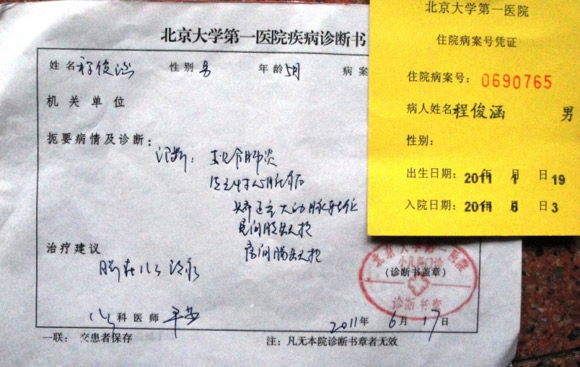 北京大学第一医院疾病诊断书
姓名 程俊涵 性别 男 年龄 5月 病案
机关单位
扼要病情及诊断：
诊断：支气管肺炎
先天性心脏病
矫正型大动脉转位
室间隔缺损
房间隔缺损
治疗建议
儿科医师
2011年 6月 17日
一联：交患者保存
注：凡无本院诊断书章者无效
北京大学第一医院
小儿科门诊
(诊断书盖章)
诊断书章
北京大学第一医院
住院病案号凭证
住院病案号：0690765
病人姓名 程俊涵 男
性别：
出生日期：2011年 1月 19
入院日期：2011年 6月 3